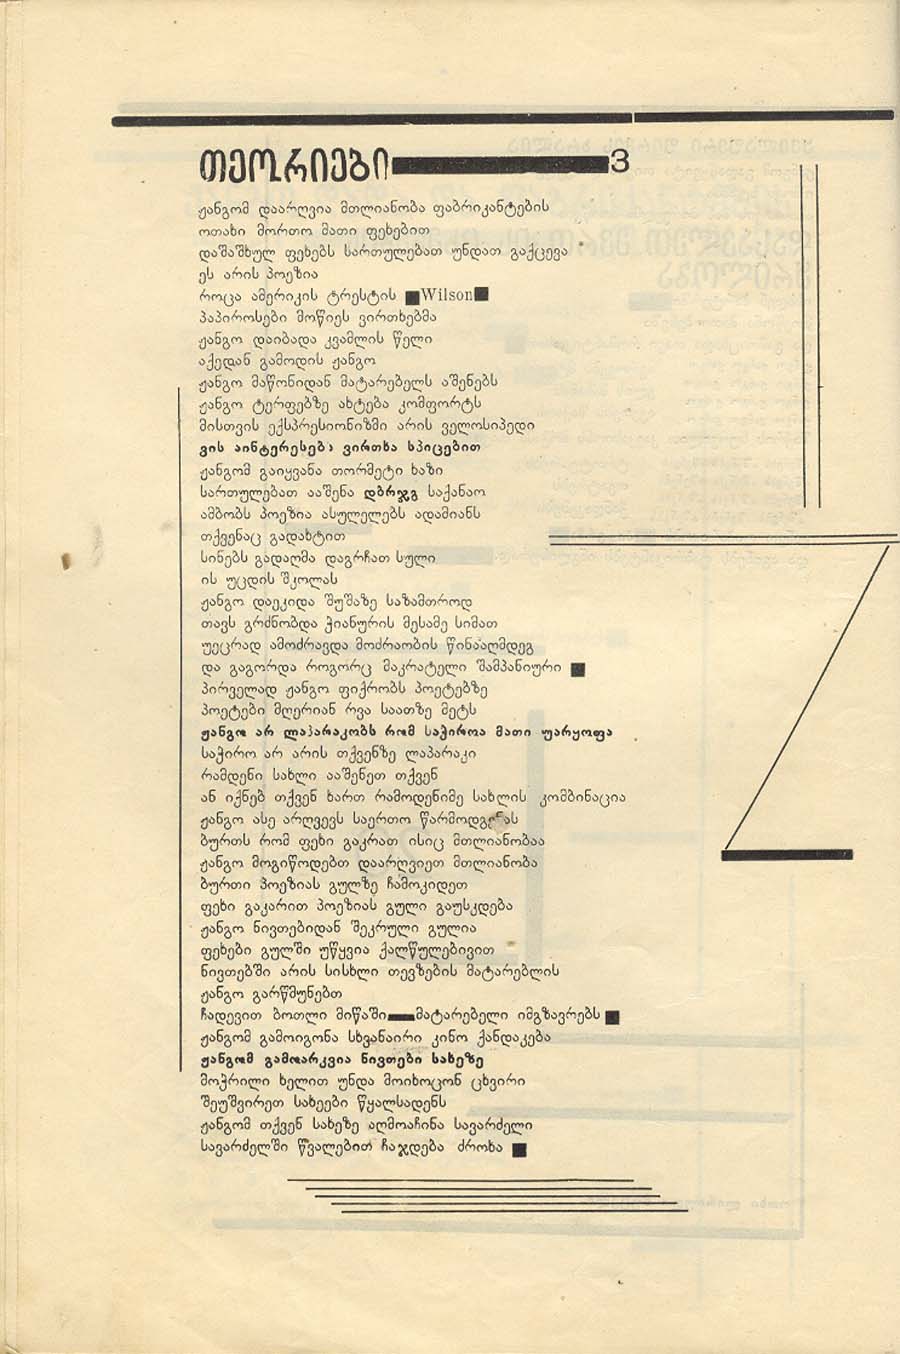 თეორიები 3
ჟანგომ დაარღვია მთლიანობა ფაბრიკანტების
ოთახი მორთო მათი ფეხებით
დაშაშხულ ფეხებს სართულებათ უნდათ გაქცევა
ეს არის პოეზია
როცა ამერიკის ტრესტის ■ Wilson ■
პაპიროსები მოწიეს ვირთხებმა
ჟანგო დაიბადა კვამლის წელი
აქედან გამოდის ჟანგო
ჟანგო მაწონიდან მატარებელს აშენებს
ჟანგო ტერფებზე ახტება კომფორტს
მისთვის ექსპრესიონიზმი არის ველოსიპედი
ვის აინტერესებს ვირთხა სპიცებით
ჟანგომ გაიყვანა თორმეტი ხაზი
სართულებათ ააშენა დბრჯგ საქანაო
ამბობს პოეზია ასულელებს ადამიანს
თქვენაც გადახტით
სინებს გადაღმა დაგრჩათ სული
ის უცდის შკოლას
ჟანგო დაეკიდა შუშაზე საზამთროდ
თავს გრძნობდა ჭიანურის მესამე სიმათ
უეცრად ამოძრავდა მოძრაობის წინააღმდეგ
და გაგორდა როგორც მაკრატელი შამპანიური ■
პირველად ჟანგო ფიქრობს პოეტებზე
პოეტები მღერიან რვა საათზე მეტს
ჟანგო არ ლაპარაკობს რომ საჭიროა მათი უარყოფა
საჭირო არ არის თქვენზე ლაპარაკი
რამდენი სახლი ააშენეთ თქვენ
ან იქნებ თქვენ ხართ რამოდენიმე სახლის კომბინაცია
ჟანგო ასე არღვევს საერთო წარმოდგენას
ბურთს რომ ფეხი გაკრათ ისიც მთლიანობაა
ჟანგო მოგიწოდებთ დაარღვიეთ მთლიანობა
ბურთი პოეზიას გულზე ჩამოკიდეთ
ფეხი გაკარით პოეზიას გული გაუსკდება
ჟანგო ნივთებიდან შეკრული გულია
ფეხები გულში უწყვია ქალწულებივით
ნივთებში არის სისხლი თევზების მატარებლის
ჟანგო გარწმუნებთ
ჩადევით ბოთლი მიწაში — მატარებელი იმგზავრებს ■
ჟანგომ გამოიგონა სხვანაირი კინო ქანდაკება
ჟანგომ გამოარკვია ნივთები სახეზე
მოჭრილი ხელით უნდა მოიხოცონ ცხვირი
შეუშვირეთ სახეები წყალსადენს
ჟანგომ თქვენ სახეზე აღმოაჩინა სავარძელი
სავარძელში წვალებით ჩაჯდება ძროხა ■